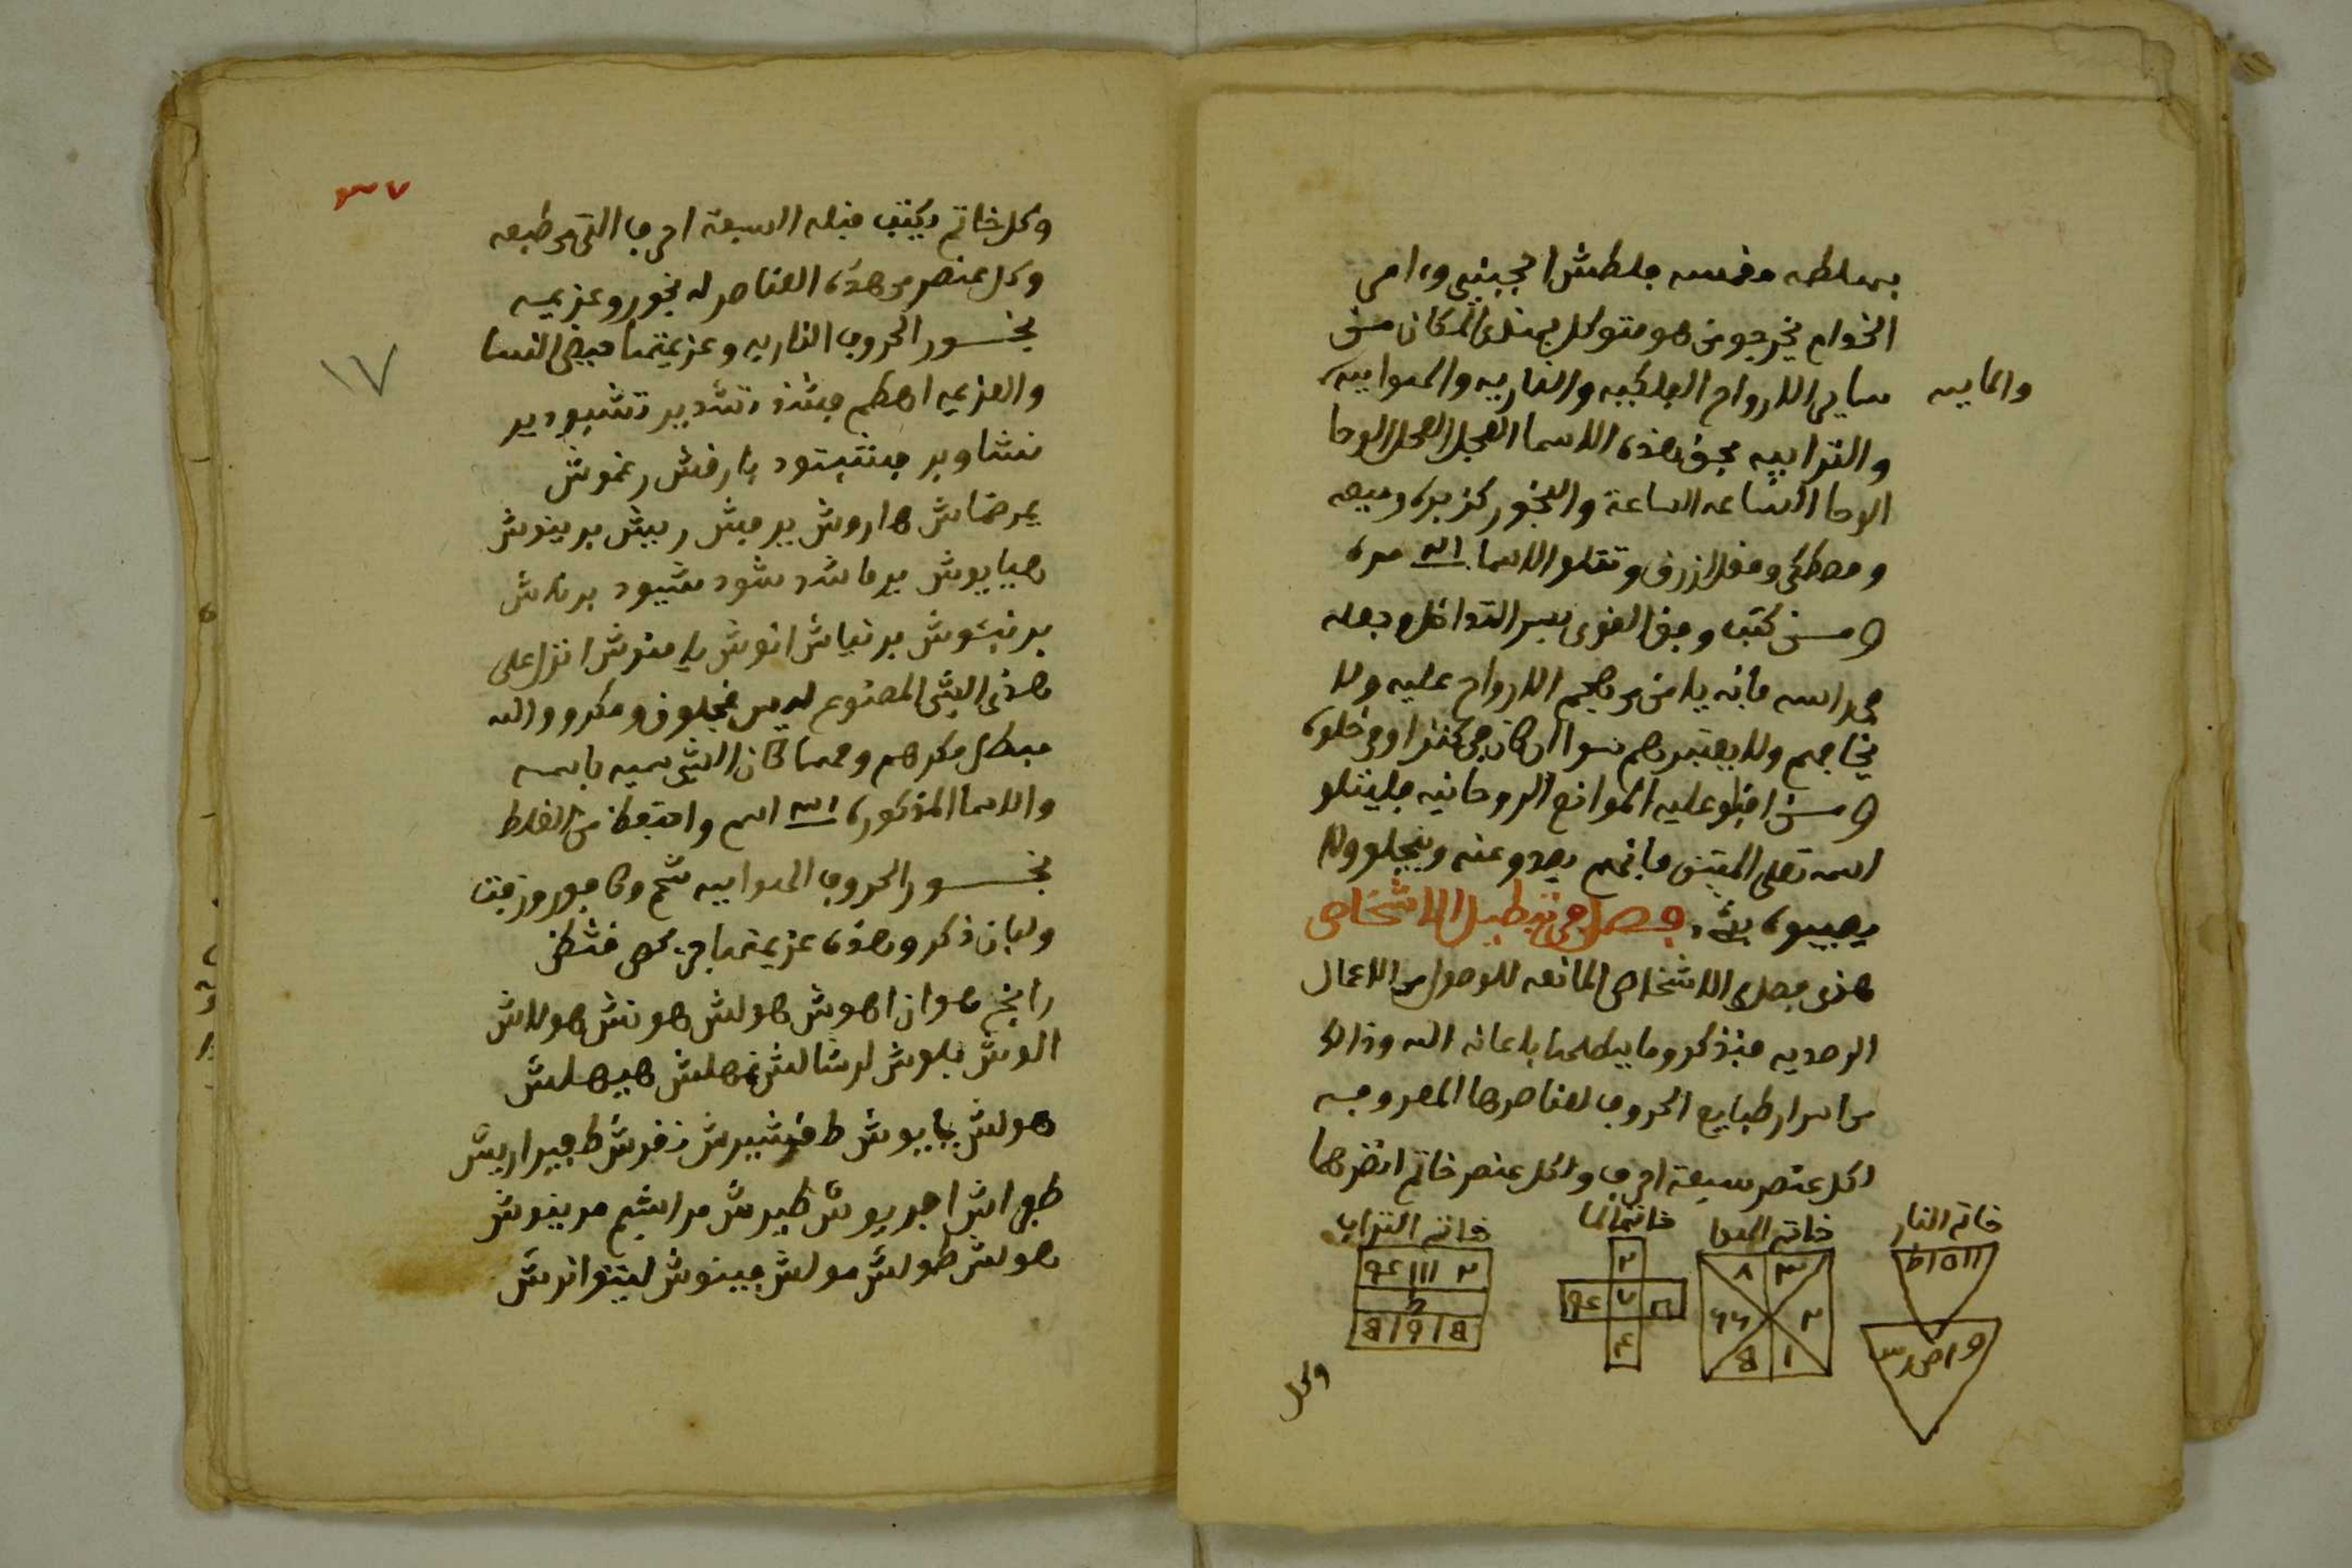 بهملطه مغسه جلطش اجيبي وامى
الخدام يخرجو من هو متوكل بهذى المكان من
ساير الارواح الفلكيه والناريه والهوابيه
والمابيه
والترابيه بحق هذه الاسما العجل العجل الوحا
الوحا الساعه الساعة والبخور كزبره وميعه
ومصطكى ومقل ازرق وتتلو الاسما مره
ومن كتب وفق الغوى بسر التداخل وجعله
فى راسه فانه يامن من هجم الارواح عليه ولا
يخافهم ولا يعتبرهم سوا ان كان فى كنز او فى خلوه
ومن اقبلو عليه الموانع الروحانيه فليتلو
اسمه تعلى المتين فانهم يصدو عنه وينجلو ولا
يصيبوه بشى فصل فى تبطيل الاشخاص
هذى فصل الاشخاص المانعه للوصول من الاعمال
الرصديه فنذكر وما يبطلها باعانة الله وذالك
من اسرار طبايع الحروف لعناصرها المعروفه
لكل عنصر سبعة احرف ولكل عنصر خاتم انضرها
خاتم النار
خاتم الهوا
خاتم الما
خاتم التراب
وكل
٣٧
١٧
وكل خاتم يكتب قبله السبعة احرف التى من طبعه
وكل عنصر من هذه العناصر له بخور وعزيمه
بخور الحروف الناريه وعزيمتها حيض النسا
والعزيمه اهطم فشذ تشدير تشبودير
نشاوير فنتبتود بارقش رغوش
يمرضاش هاروش يرميش ربيش برينوش
هيايوش برماشد شود شيود برناش
برنيشوش برنياش انوش يامنوش انزل على
هذى الشى المصنوع ليس مخلوق ومكرو والله
مبطل مكرهم ومهما كان الشى سميه باسمه
والاسما المذكوره اسم واحتفظ من الغلط
بخور الحروف الهوابيه شمع وكافور وزفت
ولبان ذكر وهذه عزيمتها
رانخ هوان اهوش هولش هونش هولاش
الوش بلوش لرشالش نهلش هيهلش
هولش يايوش طفشيرش زفرش طفيراريش
طهواش اجريوش طيرش مراشيم مرينوش
هولش طولش مولش جينوش لينوانرش